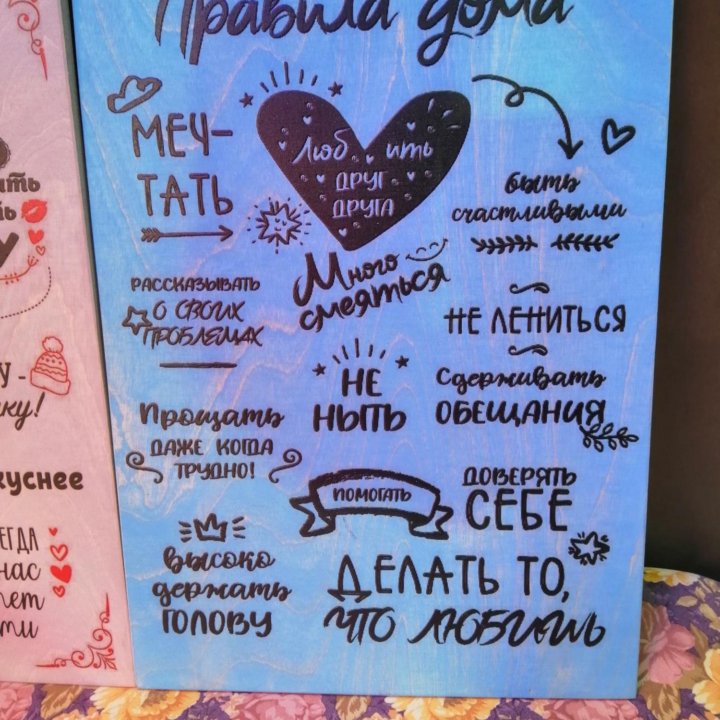 Правила дома
МЕЧ-
ТАТЬ
Люб ить
ДРУГ
ДРУГА
быть
счастливыми
РАССКАЗЫВАТЬ
О СВОИХ
ПРОБЛЕМАХ
Много
смеяться
НЕ ЛЕНИТЬСЯ
НЕ
НЫТЬ
Сдерживать
ОБЕЩАНИЯ
Прощать
ДАЖЕ КОГДА
ТРУДНО!
ПОМОГАТЬ
ДОВЕРЯТЬ
СЕБЕ
Высоко
держать
ГОЛОВУ
ДЕЛАТЬ ТО,
ЧТО ЛЮБИШЬ